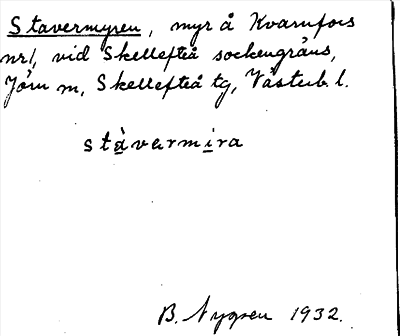 Stavermyren, myr å Kvarnfors
nr1, vid Skellefteå sockengräns,
Jörn sn, Skellefteå tg, Västerb. l.
stàvermira
B. Nygren 1932.